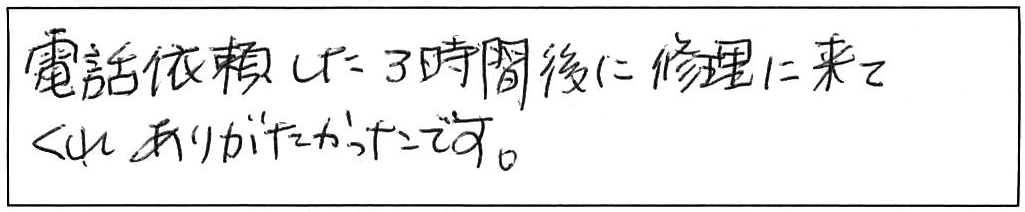 電話依頼した3時間後に修理に来て
くれありがたかったです。